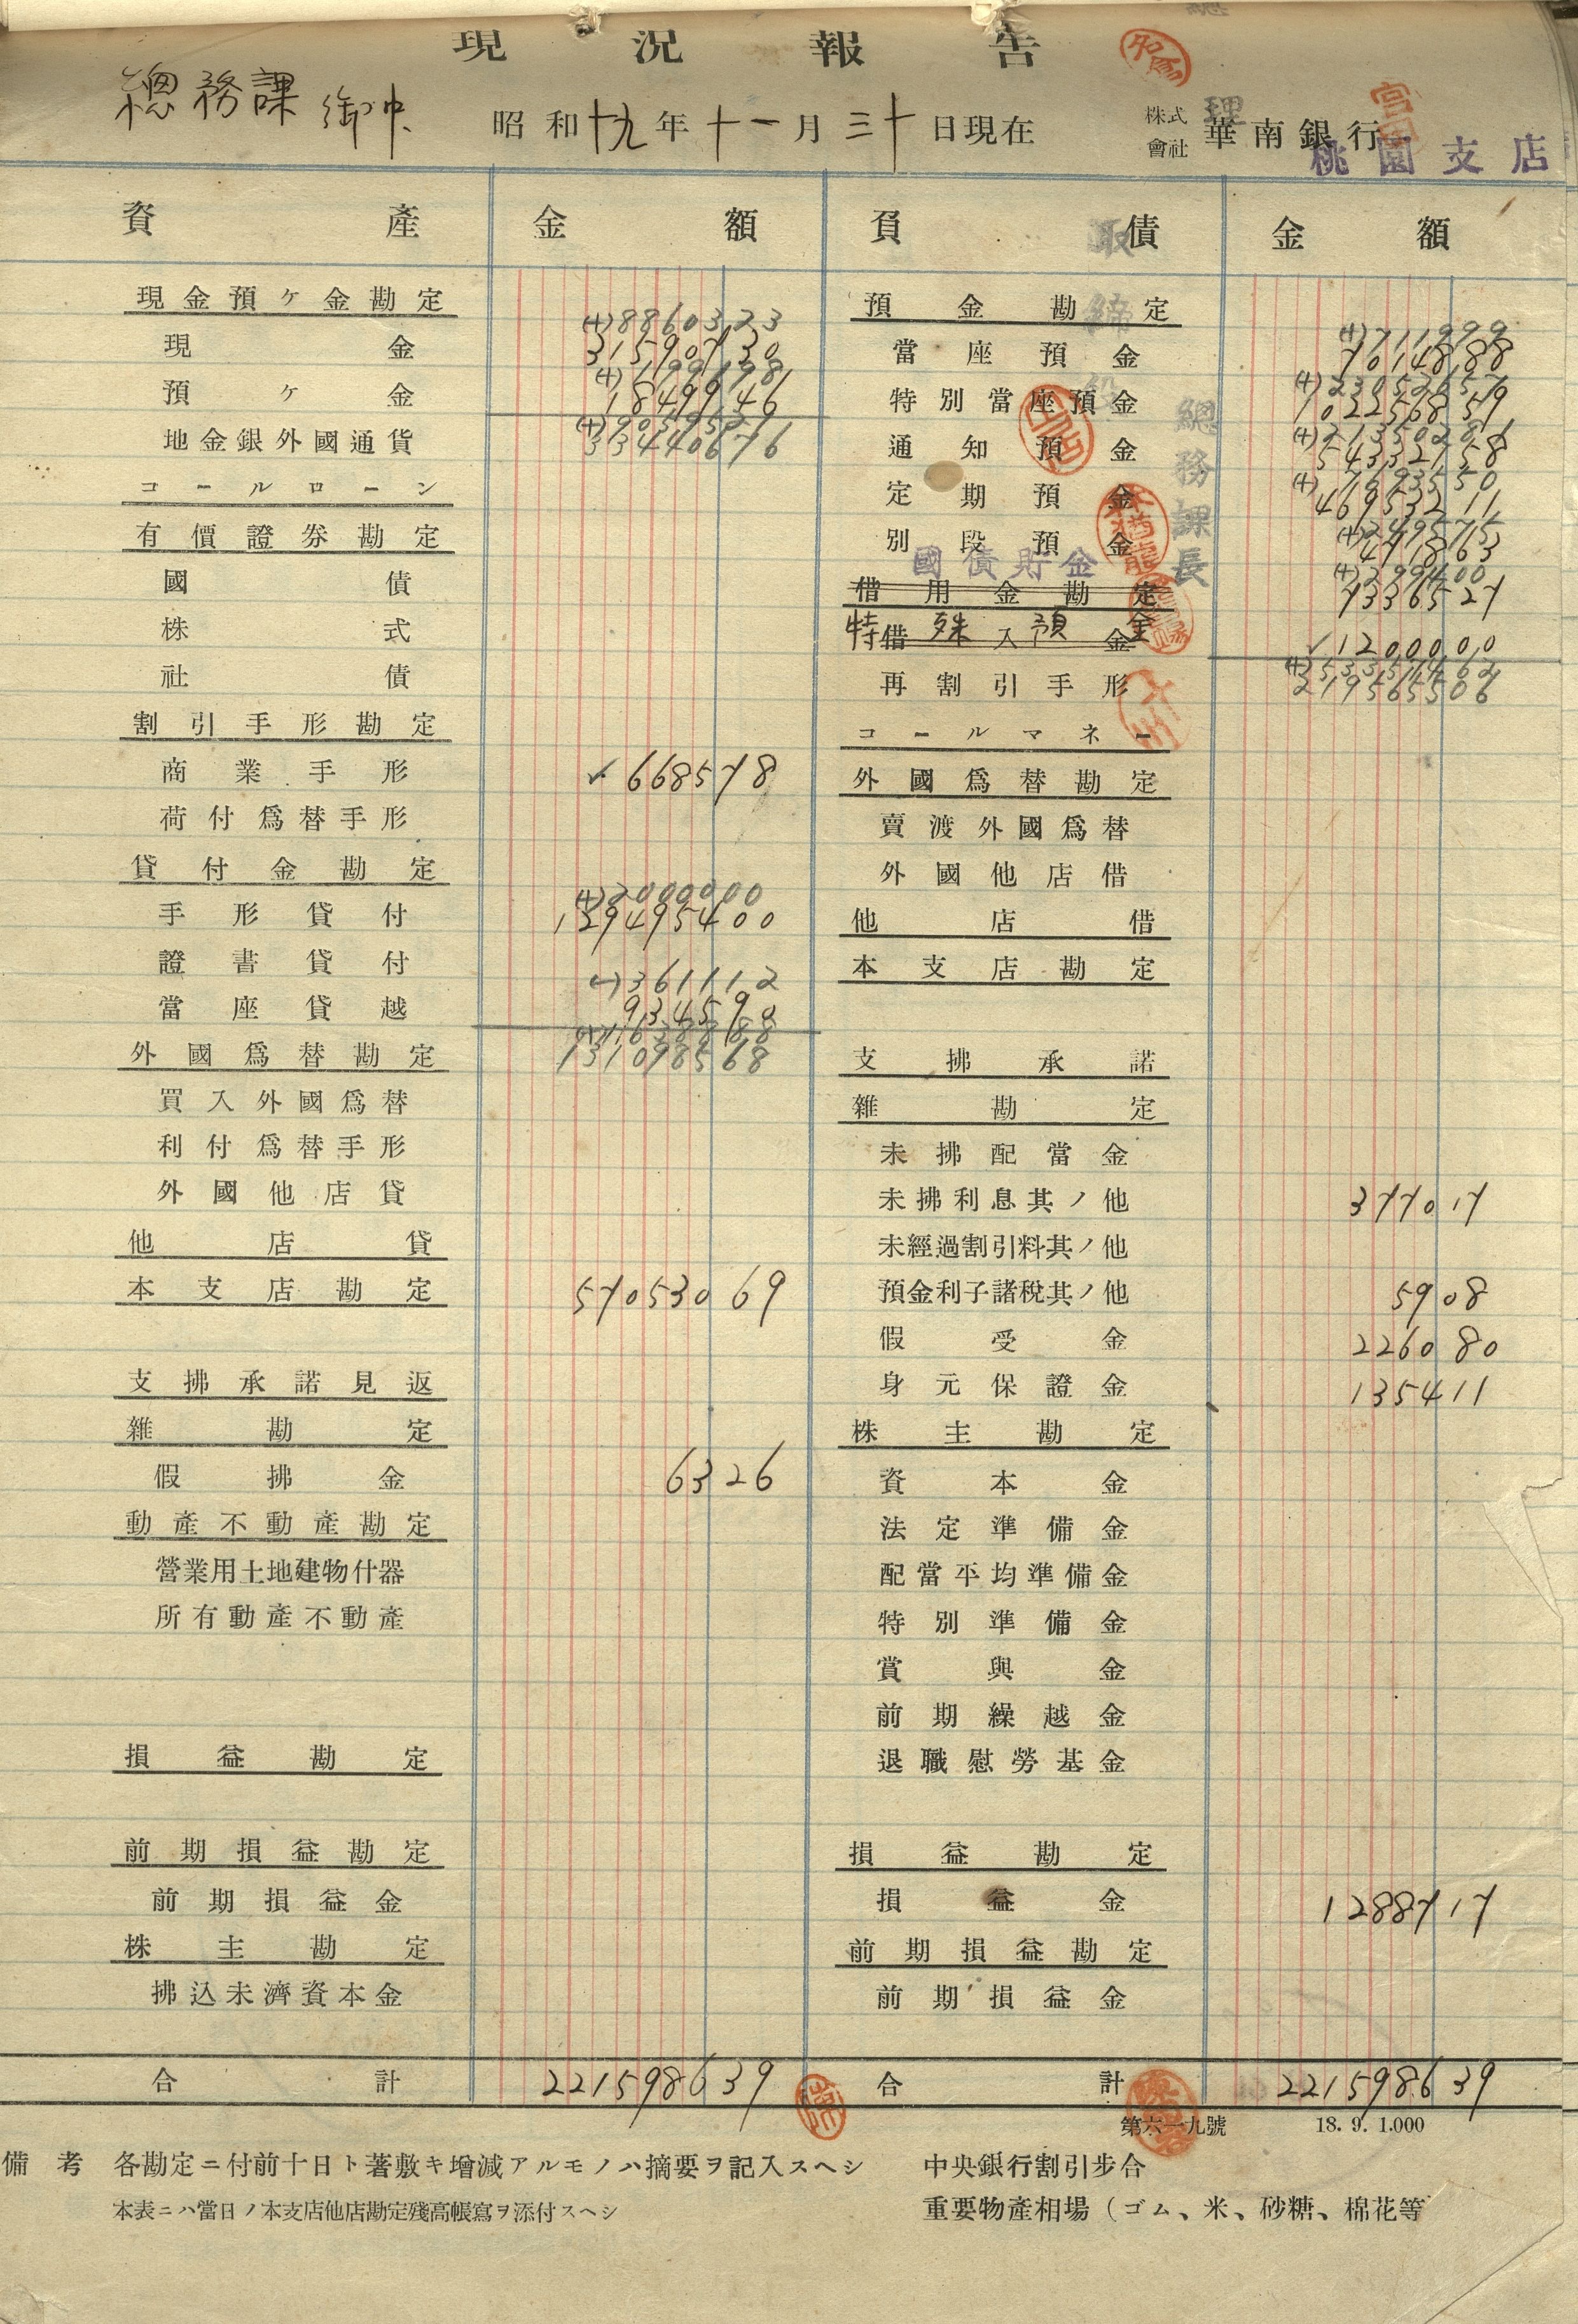 現況報告
總務課 御中
昭和十九年十一月三十日現在
株式會社 華南銀行 桃園支店
資產 金額 負債 金額
現金預ケ金勘定
(+)8860323
現金 31590730
(+)199698
預ケ金 1849946
地金銀外國通貨
33440676
コールローン
有價證券勘定
國債
株式
社債
割引手形勘定
商業手形 ✓668578
荷付爲替手形
貸付金勘定
(+)2000000
手形貸付 129495400
證書貸付
(-)361112
當座貸越 934590
(+)1638888
131098568
外國爲替勘定
買入外國爲替
利付爲替手形
外國他店貸
他店貸
本支店勘定 57053069
支拂承諾見返
雜勘定
假拂金 6326
動產不動產勘定
營業用土地建物什器
所有動產不動產
損益勘定
前期損益勘定
前期損益金
株主勘定
拂込未濟資本金
合計 221598639
預金勘定
(+)711999
當座預金 7014888
(+)23052657
特別當座預金 102256859
(+)2135028
通知預金 54332758
(+)
定期預金 46953211
(+)249575
別段預金 471863
國債貯金
(+)299400
7336527
借用金勘定
借入金
特殊預金 ✓1200000
219565506
再割引手形
コールマネー
外國爲替勘定
賣渡外國爲替
外國他店借
他店借
本支店勘定
支拂承諾
雜勘定
未拂配當金
未拂利息其ノ他 377017
未經過割引料其ノ他
預金利子諸稅其ノ他 5908
假受金 226080
身元保證金 135411
株主勘定
資本金
法定準備金
配當平均準備金
特別準備金
賞與金
前期繰越金
退職慰勞基金
損益勘定
損益金 1288717
前期損益勘定
前期損益金
合計 221598639
取締役
總務課長
第六一九號 18. 9. 1.000
備考 各勘定ニ付前十日ト著敷キ增減アルモノハ摘要ヲ記入スヘシ
本表ニハ當日ノ本支店他店勘定殘高帳寫ヲ添付スヘシ
中央銀行割引步合
重要物產相場（ゴム、米、砂糖、棉花等